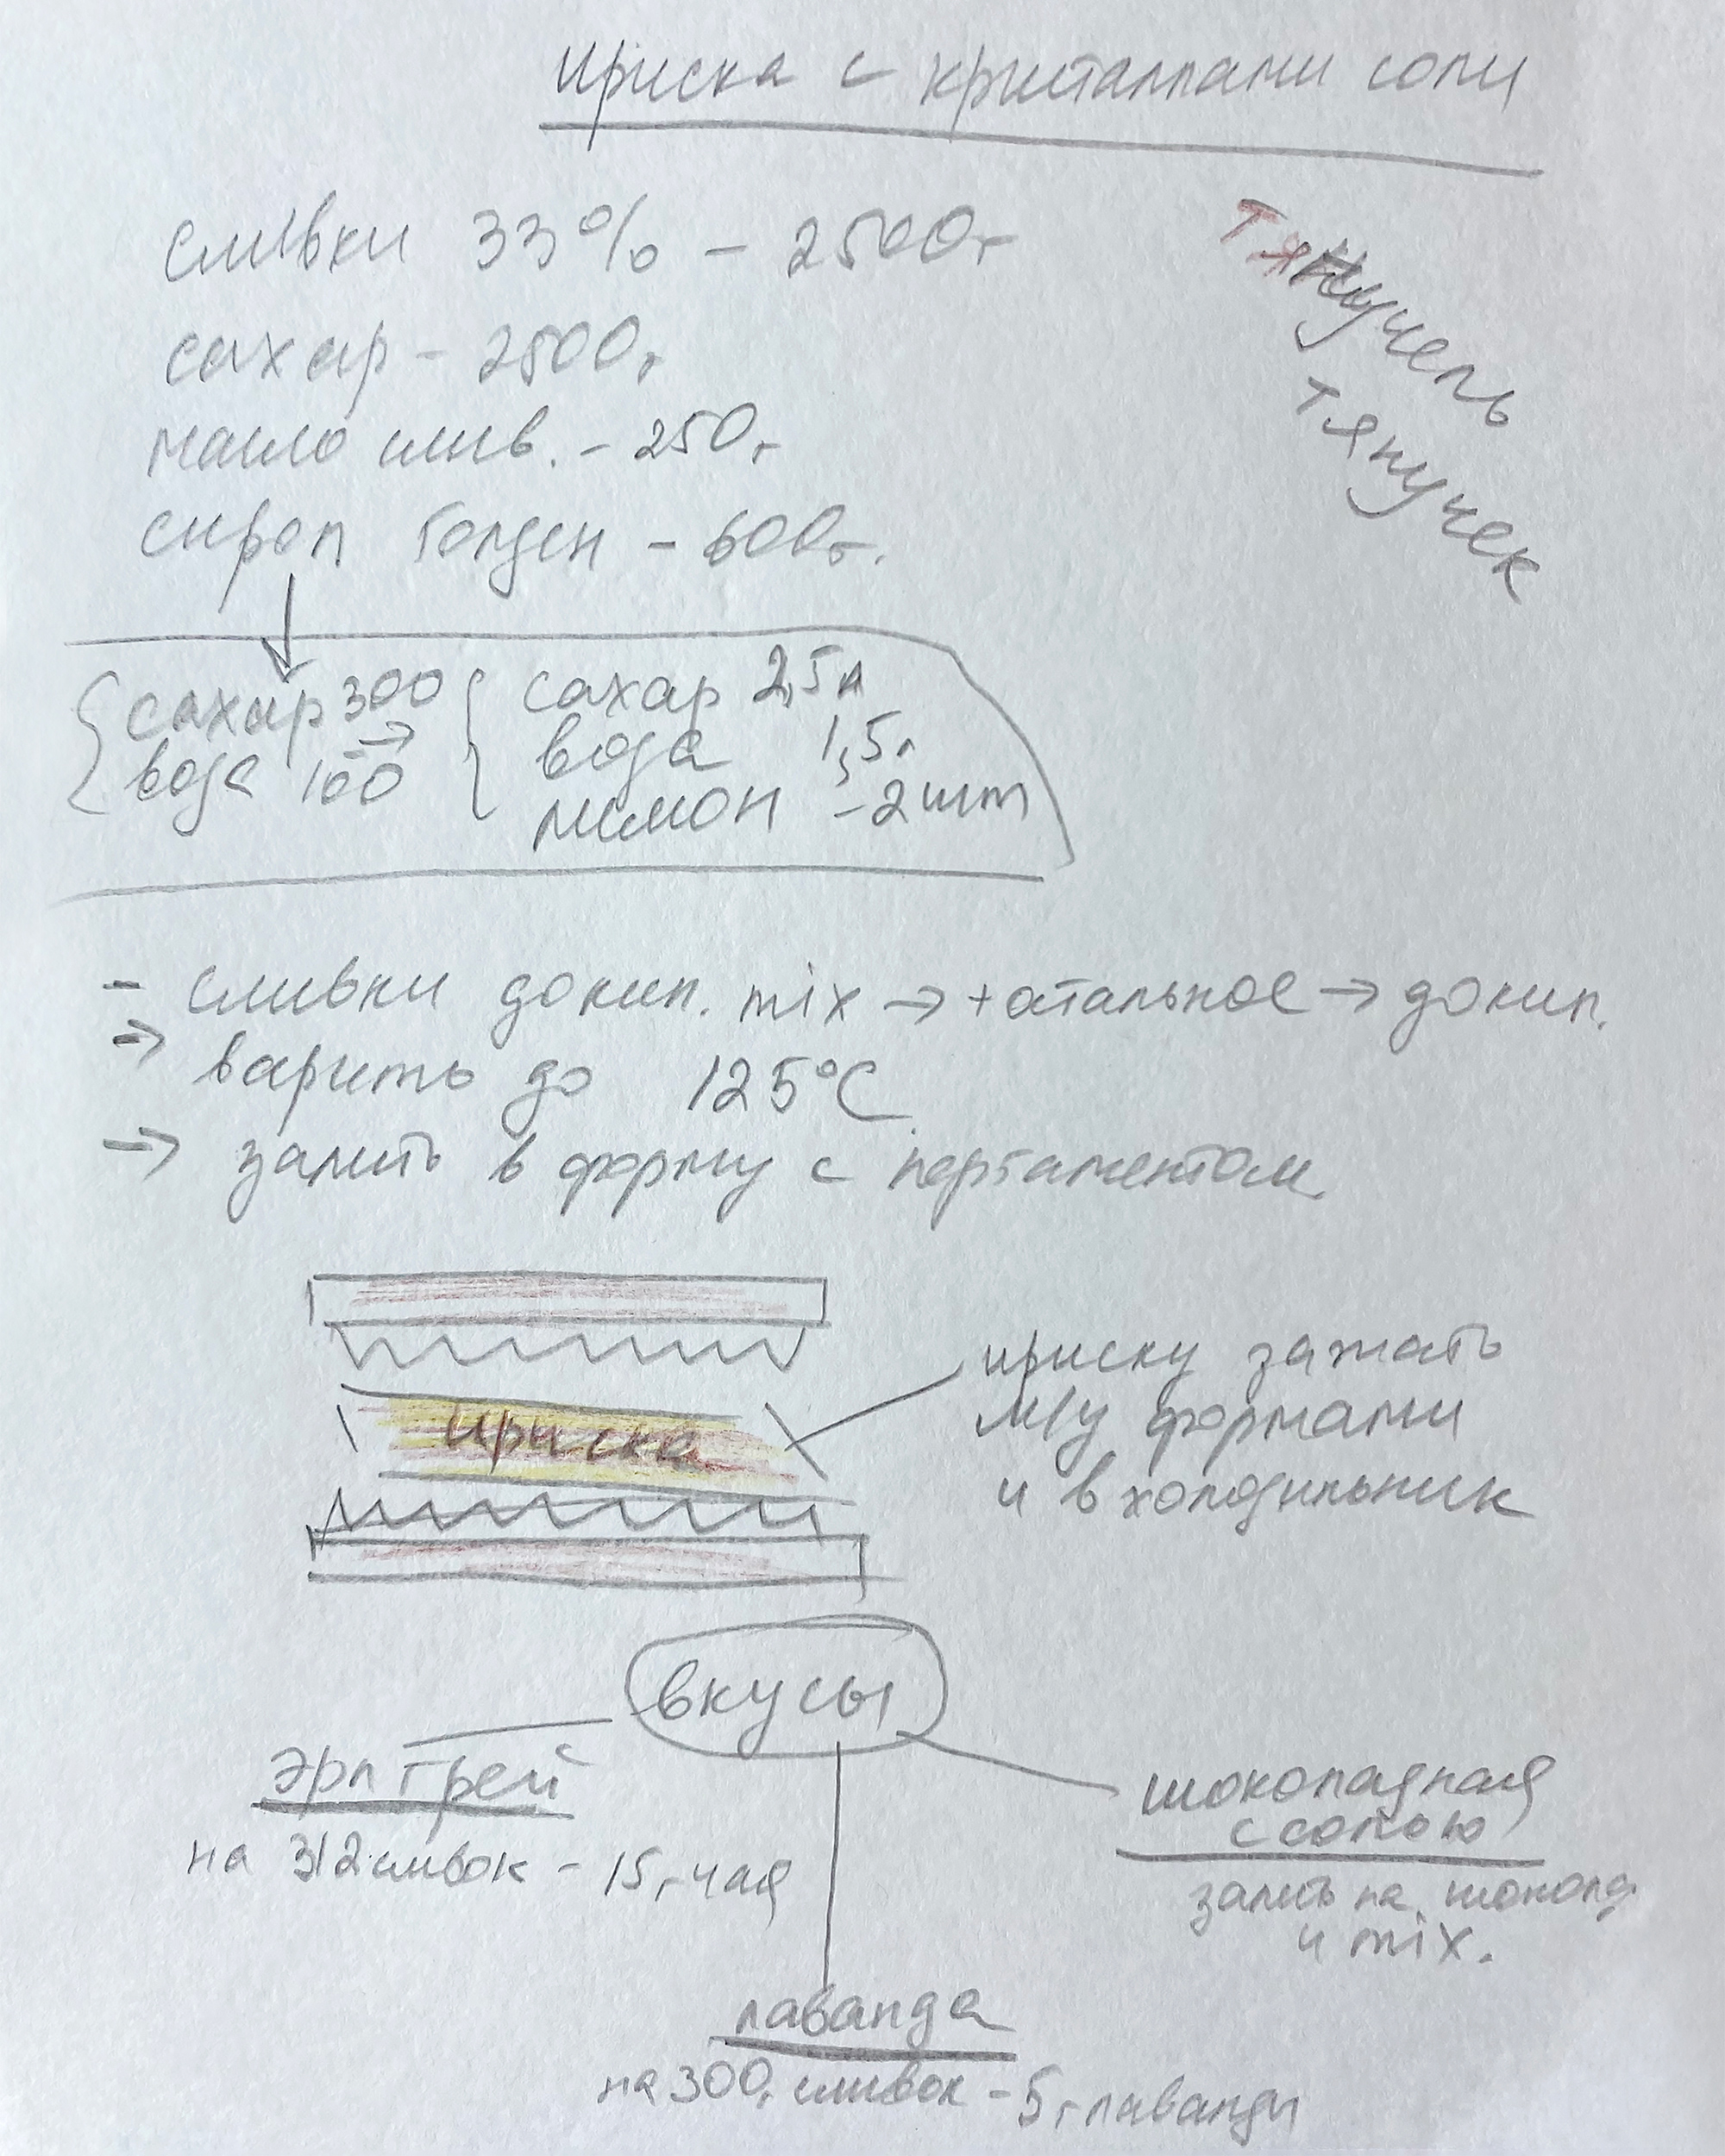 Ириска с кристаллами соли
сливки 33% - 2500г
сахар - 2500г
масло слив. - 250г
сироп Голден - 600г.
тянучель
тянучек
сахар 300
вода 100
сахар 2,5л
вода 1,5л
лимон - 2 шт
- сливки докип. mix → + отальное → докип.
→ варить до 125°C
→ залить в форму с пергаментом.
ириска
ириску зажать
м/у формами
и в холодильник
вкусы
эрл грей
на 312 сливок - 15г чая
шоколадная
с солью
залить на шоколад
и mix.
лаванда
на 300г сливок - 5г лаванды